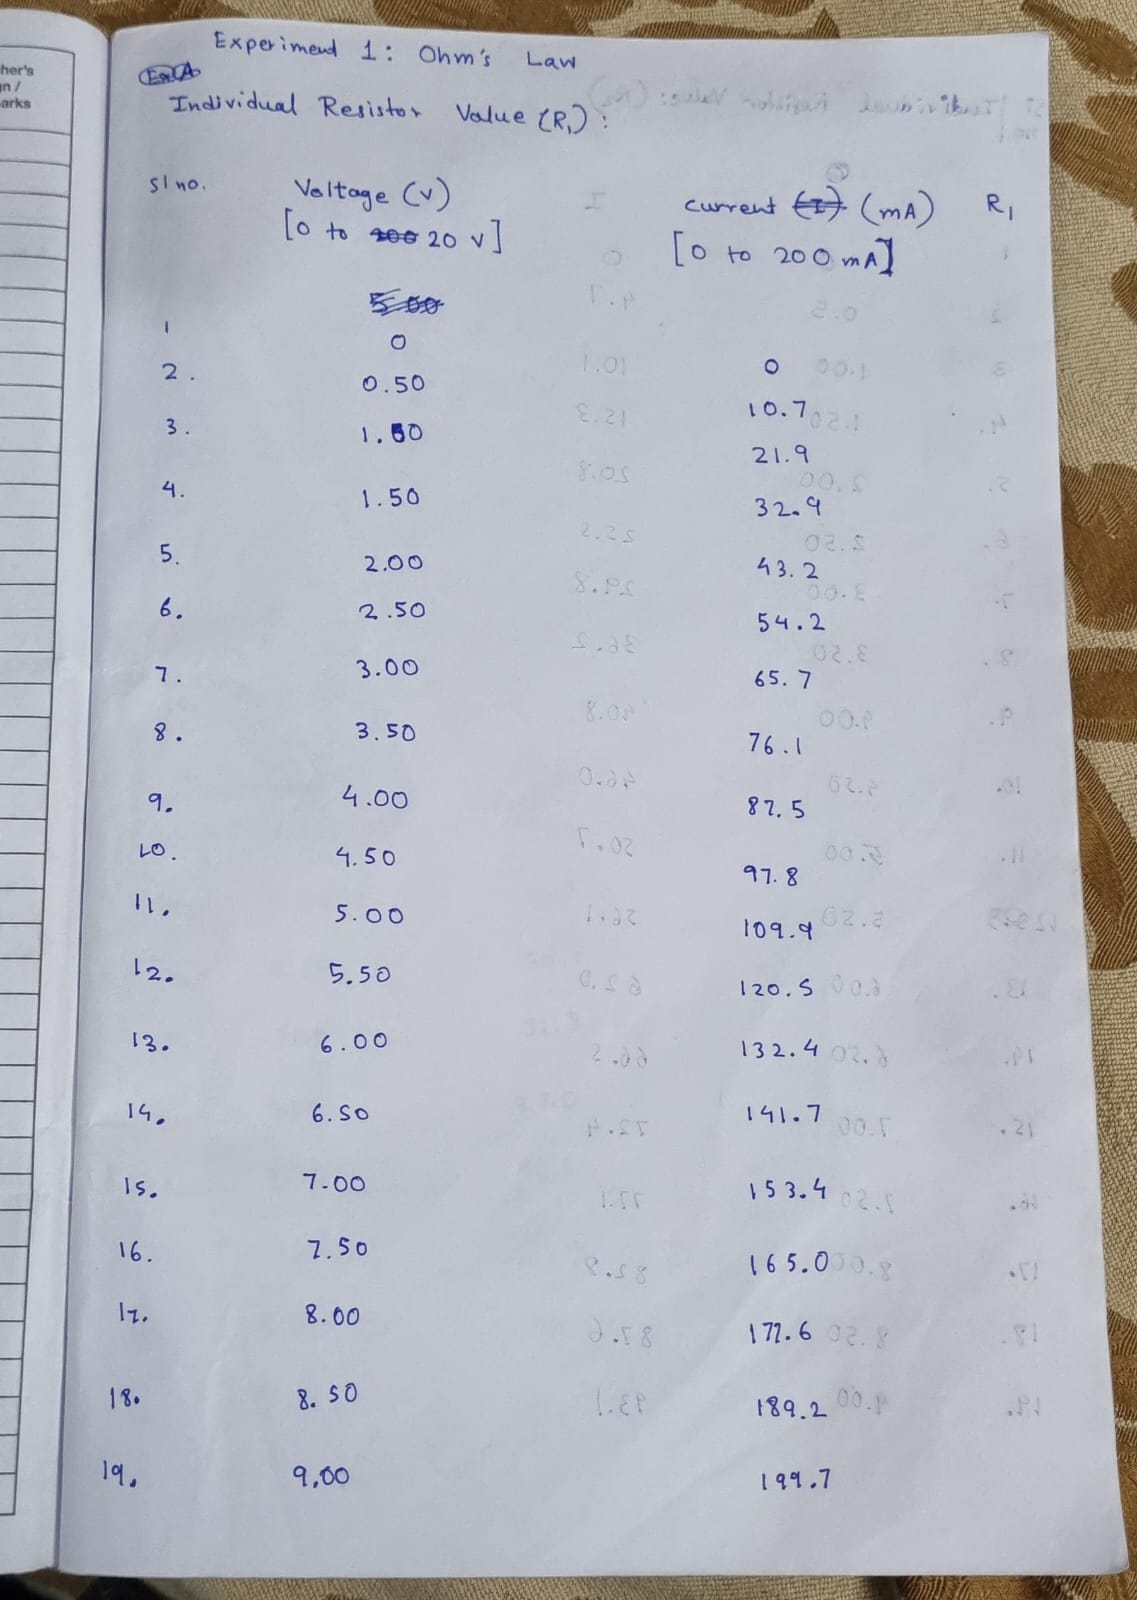 her's
gn /
arks
Experiment 1: Ohm's Law
Individual Resistor Value (R₁):
Sl no. Voltage (V) current (I) (mA) R₁
[0 to 200 20 V] [0 to 200 mA]
5.00
1 0 0
2. 0.50 10.7
3. 1.00 21.9
4. 1.50 32.9
5. 2.00 43.2
6. 2.50 54.2
7. 3.00 65.7
8. 3.50 76.1
9. 4.00 87.5
10. 4.50 97.8
11. 5.00 109.4
12. 5.50 120.5
13. 6.00 132.4
14. 6.50 141.7
15. 7.00 153.4
16. 7.50 165.0
17. 8.00 177.6
18. 8.50 189.2
19. 9.00 199.7